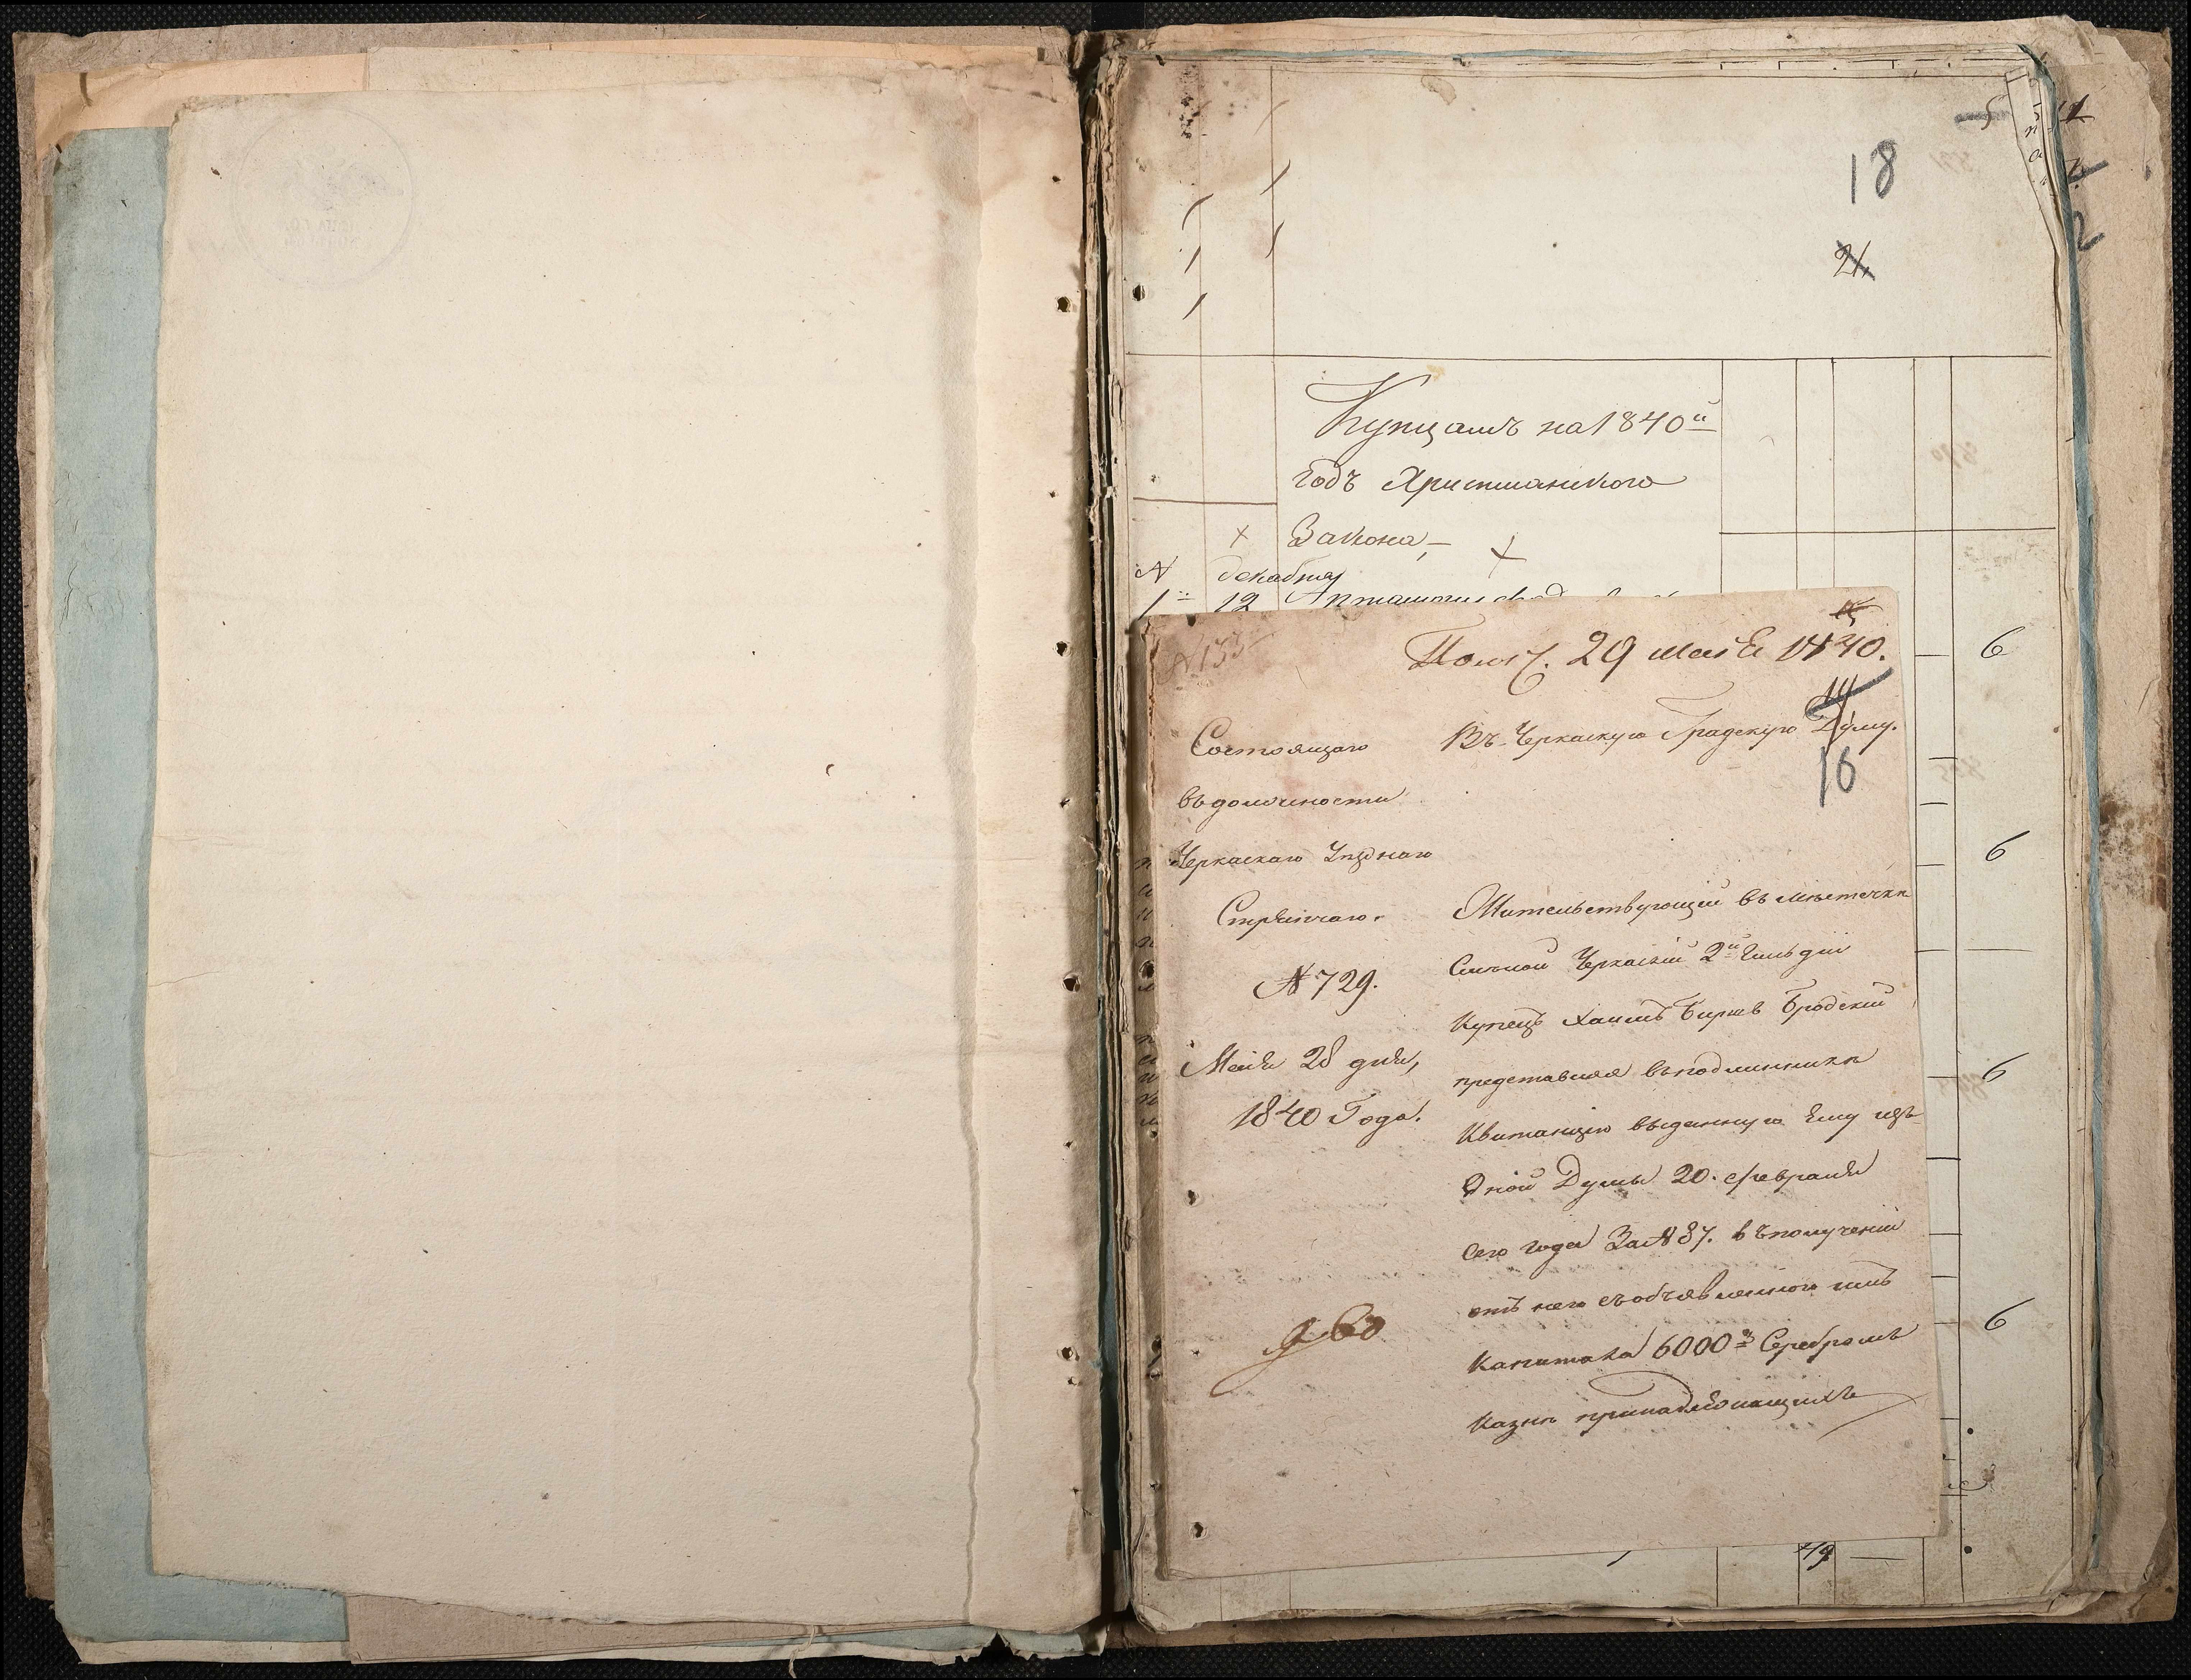 18
21
Купцамъ на 1840й
годъ Христианского
Закона,—
№ декабря
1й 12
№ 153
Получ. 29 Мая 1840.
Въ Черкаскую Градскую Думу.
16
Состоящаго
въ должности
Черкаскаго Уѣзднаго
Стряпчаго.
№ 729.
Маія 28 дня,
1840 Года.
Жительствующій въ мѣстечкѣ
Смѣлой Черкаскій 2й Гильдіи
Купецъ Хаимъ Бродскій
представляя въ подлинникѣ
Квитанцію выданную Ему изъ
Оной Думы 20. февраля
сего года За № 87. въ полученіи
отъ него съ объявленного имъ
Капитала 6000 Серебромъ
Казнѣ принадлежащихъ
6
6
6
6